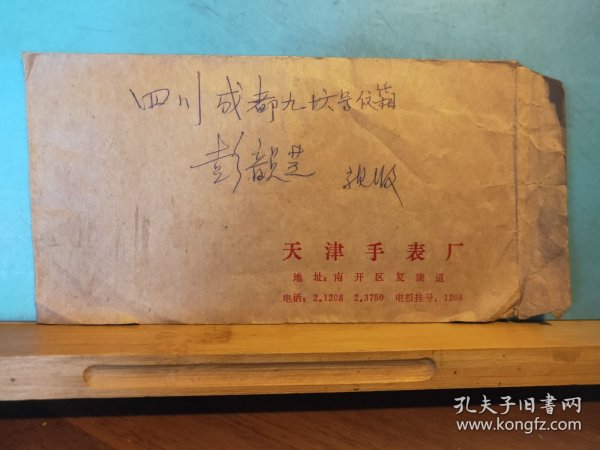 四川成都九
彭韻芝 亲收
天津手表厂
地址:南开区复康道
电话:2.1208 2.3750 电报挂号:1208
孔夫子旧书网
www.kongfz.com